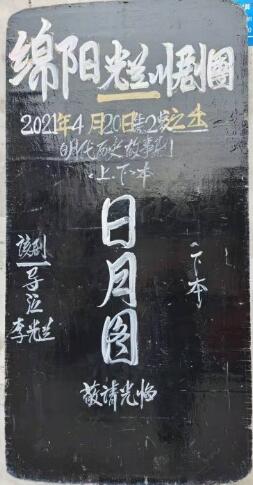 绵阳光兰川剧团
2021年4月20日第2场之本
明代历史故事剧
·上下本·
日月图
·下本·
该剧
导演
李光兰
敬请光临